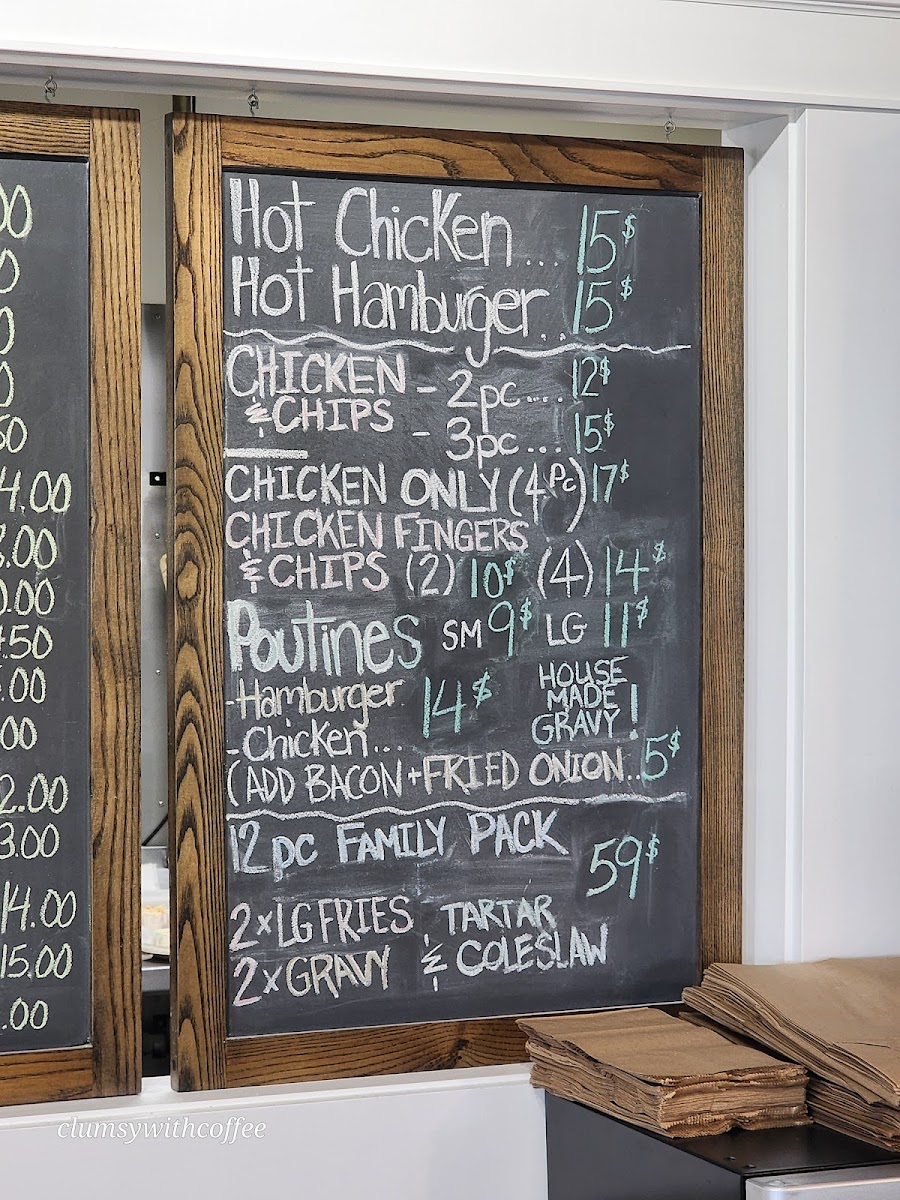 00
0
0
0
50
4.00
3.00
0.00
.50
.00
00
2.00
3.00
14.00
15.00
.00
Hot Chicken... 15$
Hot Hamburger.. 15$
CHICKEN - 2pc.... 12$
& CHIPS - 3pc... 15$
CHICKEN ONLY (4pc) 17$
CHICKEN FINGERS
& CHIPS (2) 10$ (4) 14$
Poutines SM 9$ LG 11$
-Hamburger 14$
-Chicken...
HOUSE
MADE
GRAVY!
(ADD BACON + FRIED ONION.. 5$
12 pc FAMILY PACK
59$
2x LG FRIES
2x GRAVY
TARTAR
& COLESLAW
clumsywithcoffee